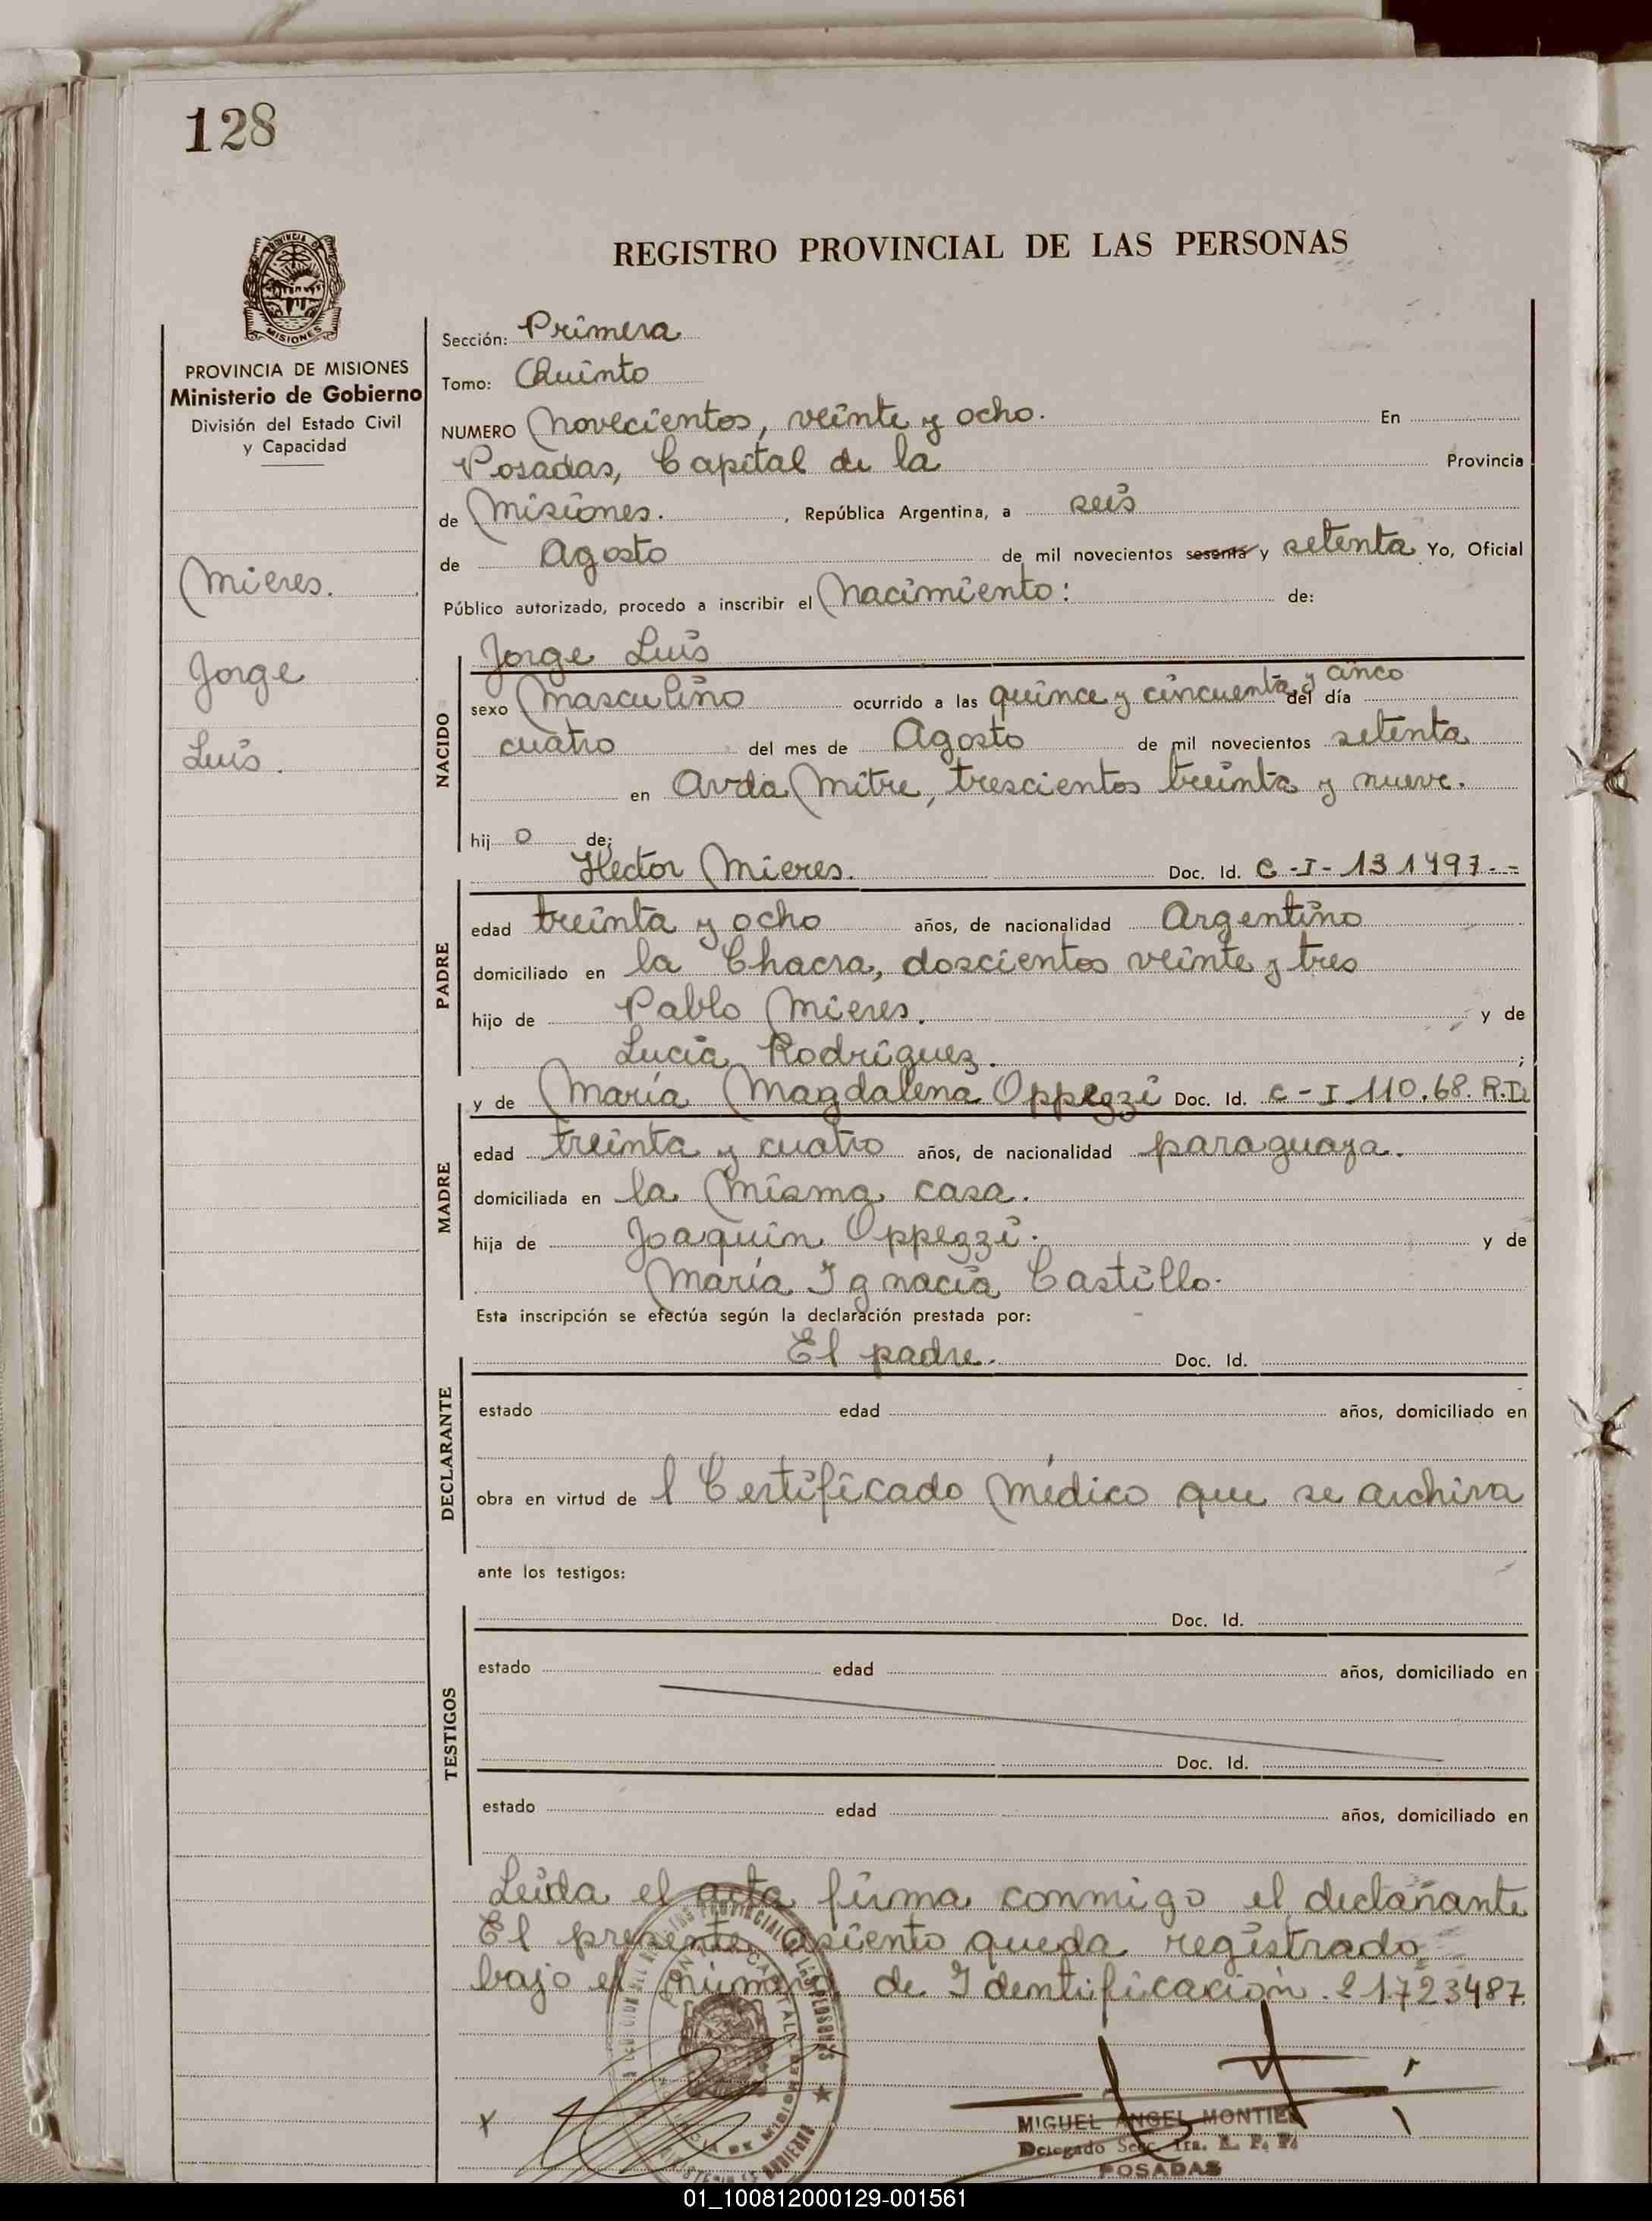 128
REGISTRO PROVINCIAL DE LAS PERSONAS
PROVINCIA DE MISIONES
Ministerio de Gobierno
División del Estado Civil
y Capacidad
Mieres.
Jorge
Luis.
Sección: Primera
Tomo: Quinto
NUMERO Novecientos, veinte y ocho. En
Posadas, Capital de la Provincia
de Misiones. , República Argentina, a seis
de Agosto de mil novecientos sesenta y setenta Yo, Oficial
Público autorizado, procedo a inscribir el Nacimiento: de:
Jorge Luis
NACIDO
sexo Masculino ocurrido a las quince y cincuenta y cinco del día
cuatro del mes de Agosto de mil novecientos setenta
en Avda Mitre, trescientos treinta y nueve.
hij o de:
Hector Mieres. Doc. Id. C-I-131497--
PADRE
edad treinta y ocho años, de nacionalidad Argentino
domiciliado en la Chacra, doscientos veinte y tres
hijo de Pablo Mieres. y de
Lucia Rodriguez. ;
y de María Magdalena Oppezzi Doc. Id. C-I-110.68. R.I.
MADRE
edad treinta y cuatro años, de nacionalidad paraguaya.
domiciliada en la misma casa.
hija de Joaquin Oppezzi. y de
María Ignacia Castillo.
Esta inscripción se efectúa según la declaración prestada por:
El padre. Doc. Id.
DECLARANTE
estado edad años, domiciliado en
obra en virtud de l Certificado Médico que se archiva
ante los testigos:
Doc. Id.
TESTIGOS
estado edad años, domiciliado en
Doc. Id.
estado edad años, domiciliado en
Leida el acta firma conmigo el declarante
El presente asiento queda registrado
bajo el número de Identificación. 21.723487.
x
MIGUEL ANGEL MONTIEL
Delegado Secc. 1ra. R. P. P.
POSADAS
01_100812000129-001561